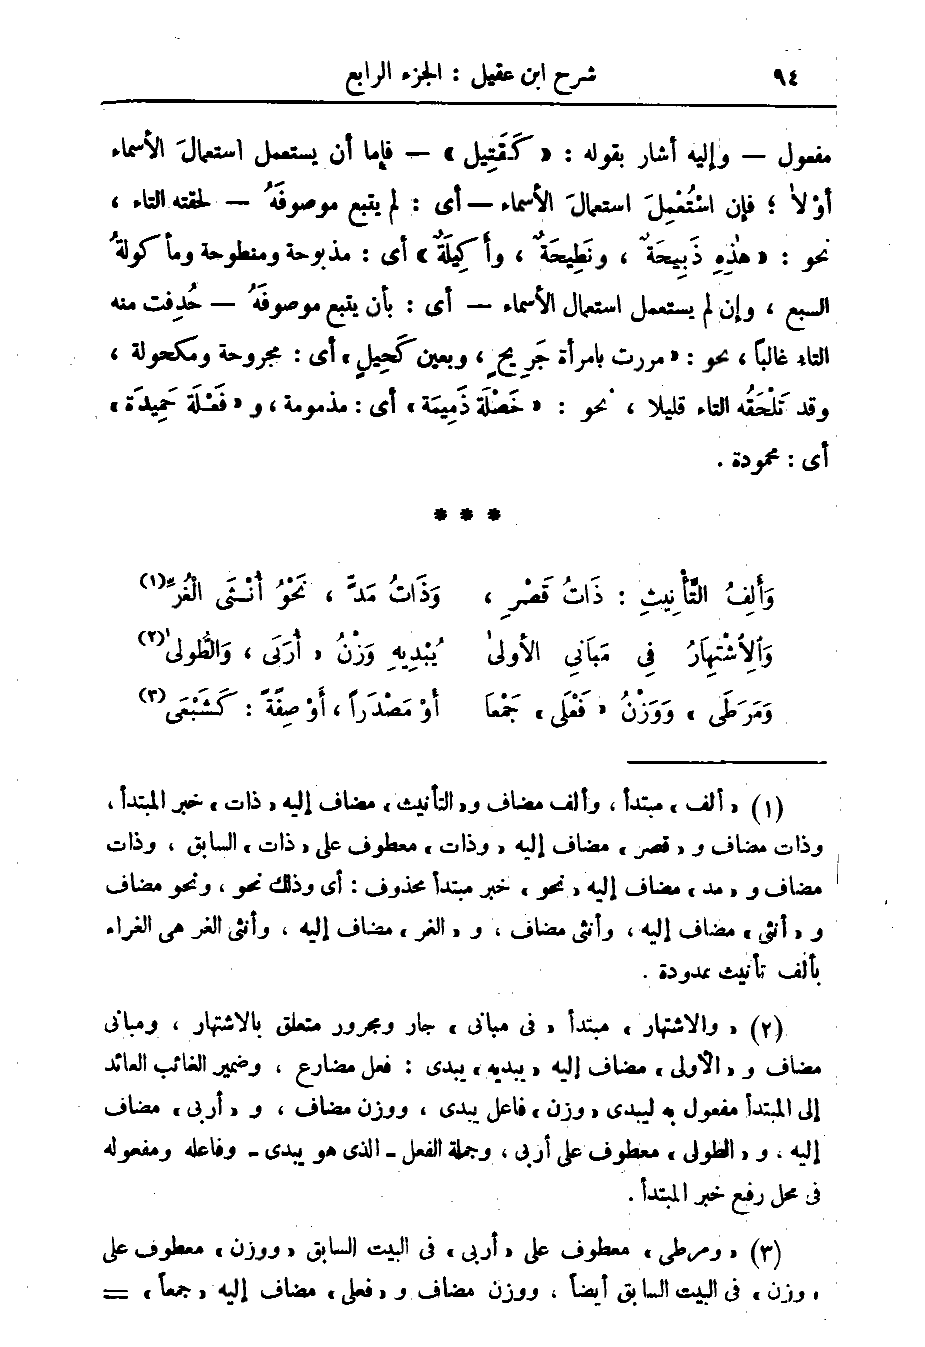 ٩٤ شرح ابن عقيل : الجزء الرابع
مفعول — وإليه أشار بقوله : « كَقَتِيل » — فإما أن يستعمل استعمالَ الأسماء
أوْلاَ ؛ فإن اسْتُعْمِلَ استعمالَ الأسماء — أى : لم يتبع موصوفَهُ — لحقته التاء ،
نحو : « هٰذِهِ ذَبِيحَةٌ ، ونَطِيحَةٌ ، وأَكِيلَةٌ » أى : مذبوحة ومنطوحة ومأكولةُ
السبع ، وإن لم يستعمل استعمال الأسماء — أى : بأن يتبع موصوفَهُ — حُذِفت منه
التاء غالباً ، نحو : « مررت بامرأة جَرِيحٍ ، وبعين كَحِيلٍ » أى : مجروحة ومكحولة ،
وقد تَلْحَقُه التاء قليلا ، نحو : « خَصْلَة ذَمِيمَة » أى : مذمومة ، و « فَعْلَة حَمِيدَة »
أى : محمودة .
* * *
وَأَلِفُ التَّأْنِيثِ : ذَاتُ قَصْرِ ، وَذَاتُ مَدٍّ ، نَحْوُ أُنْثَى الْغُرِّ (١)
وَالِاشْتِهَارُ فِي مَبَانِي الأولىٰ يُبْدِيهِ وَزْنُ « أُرَبَى ، وَالطُّولَى (٢)
وَمَرَطَى » ، وَوَزْنُ « فَعْلَى » جَمْعَا أوْ مَصْدَراً ، أَوْ صِفَةً : كَشَبْعَى (٣)
(١) « ألف » مبتدأ ، وألف مضاف و« التأنيث » مضاف إليه « ذات » خبر المبتدأ ،
وذات مضاف و « قصر » مضاف إليه « وذات » معطوف على « ذات » السابق ، وذات
مضاف و « مد » مضاف إليه « نحو » خبر مبتدأ محذوف : أى وذلك نحو ، ونحو مضاف
و « أنثى » مضاف إليه ، وأنثى مضاف ، و « الغر » مضاف إليه ، وأنثى الغر هى الغراء
بألف تأنيث ممدودة .
(٢) « والاشتهار » مبتدأ « فى مبانى » جار ومجرور متعلق بالاشتهار ، ومبانى
مضاف و « الأولى » مضاف إليه « يبديه » يبدى : فعل مضارع ، وضمير الغائب العائد
إلى المبتدأ مفعول به ليبدى « وزن » فاعل يبدى ، ووزن مضاف ، و « أربى » مضاف
إليه ، و « الطولى » معطوف على أربى ، وجملة الفعل ـ الذى هو يبدى ـ وفاعله ومفعوله
فى محل رفع خبر المبتدأ .
(٣) « ومرطى » معطوف على « أربى » فى البيت السابق « ووزن » معطوف على
« وزن » فى البيت السابق أيضاً ، ووزن مضاف و « فعلى » مضاف إليه « جمعاً » =